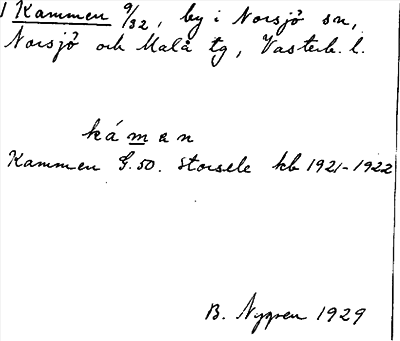 1 Kammen 9/32, by i Norsjö sn,
Norsjö och Malå tg, Västerb. l.
káman
Kammen G.50. Storsele kb 1921-1922
B. Nygren 1929